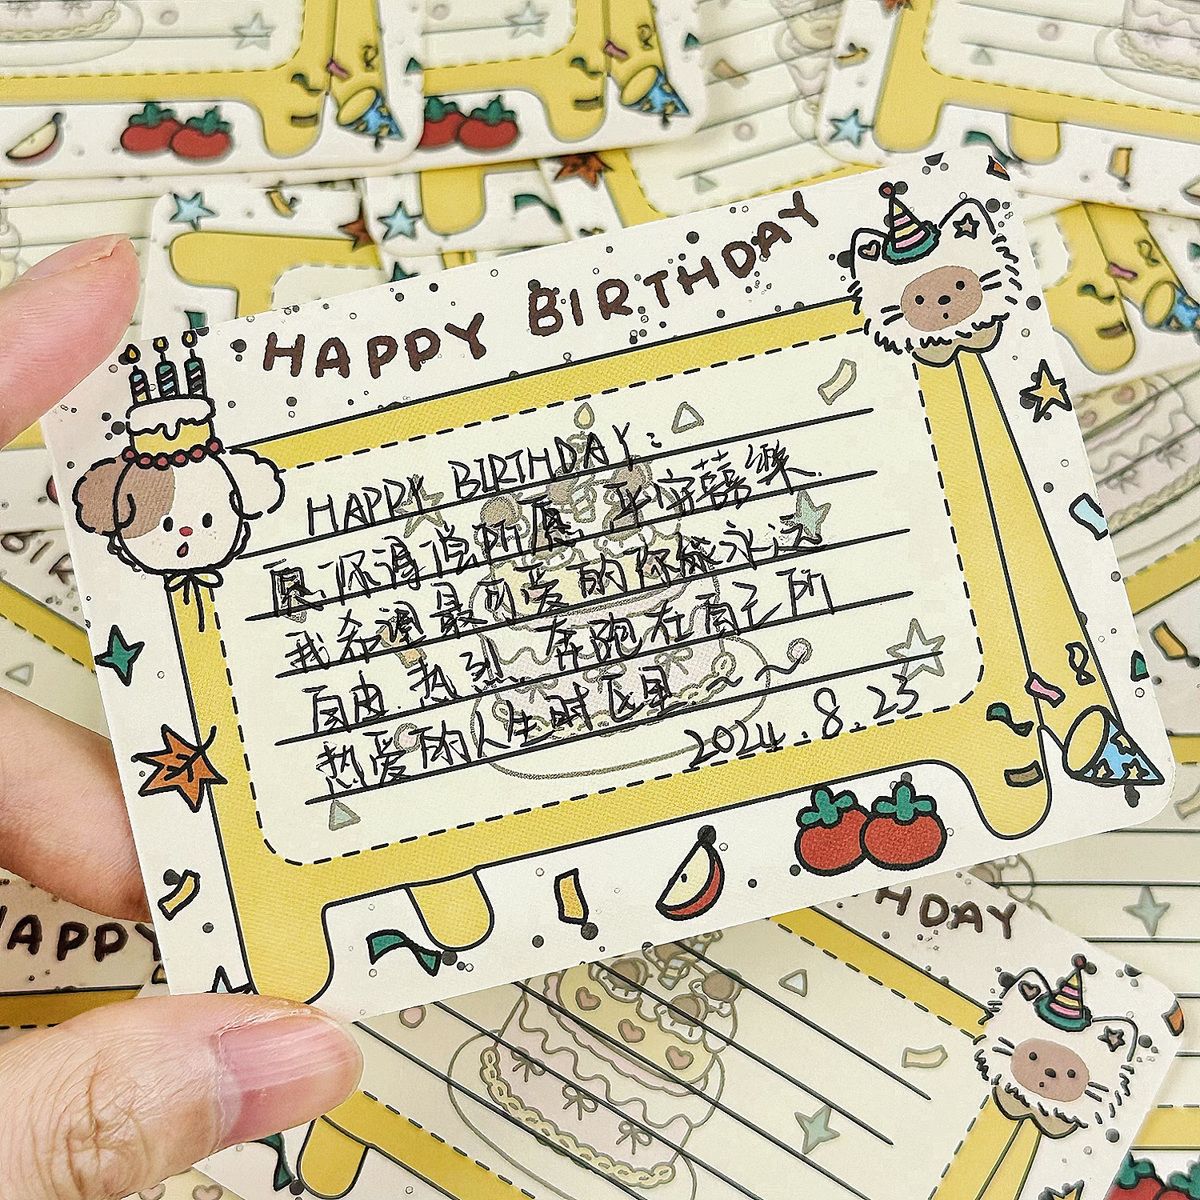 HAPPY BIRTHDAY
HAPPY BIRTHDAY:
愿你得偿所愿 平安喜樂.
我希望最可爱的你能永远
自由.热烈.奔跑在自己所
热爱的人生时区里.
2024.8.23
HAPPY
HDAY